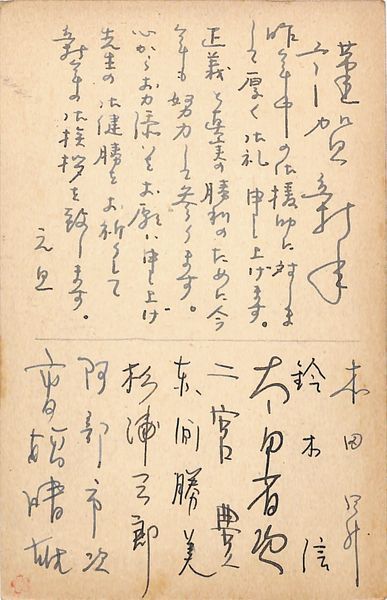 謹賀新年
昨年中の御援助に対しま
して厚く御礼申し上げます。
正義と真実の勝利のために今
年も努力して参ります。
心からお力添へをお願い申し上げ
先生の御健勝をお祈りして
新年の御挨拶を致します。
元旦
本田昇
鈴木信
太田省次
二宮豊
東側勝美
杉浦三郎
阿部市次